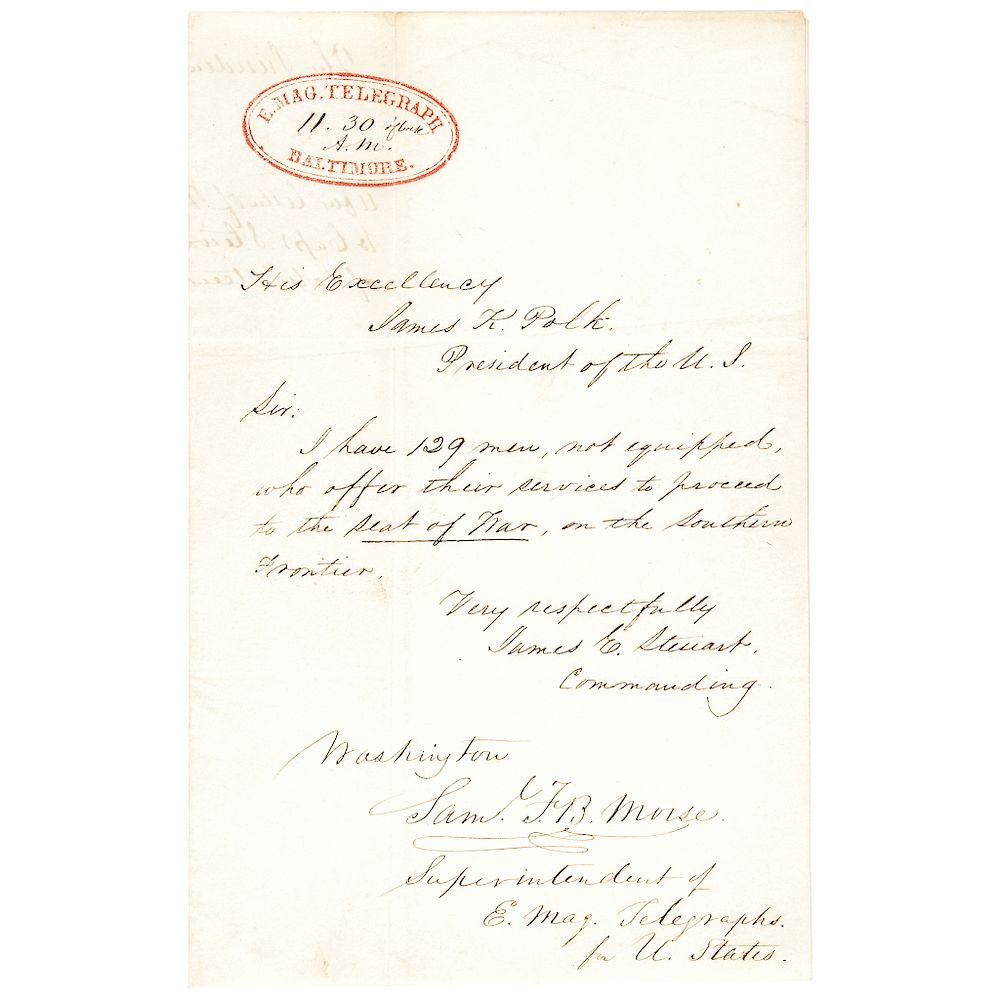 E. MAG. TELEGRAPH
11. 30 o'clock
A.M.
BALTIMORE.
His Excellency
James K. Polk.
President of the U. S.
Sir:
I have 129 men, not equipped,
who offer their services to proceed
to the seat of War, on the Southern
Frontier.
Very respectfully
James E. Steuart.
Commanding.
Washington
Saml. F. B. Morse.
Superintendent of
E. Mag. Telegraphs.
for U. States.